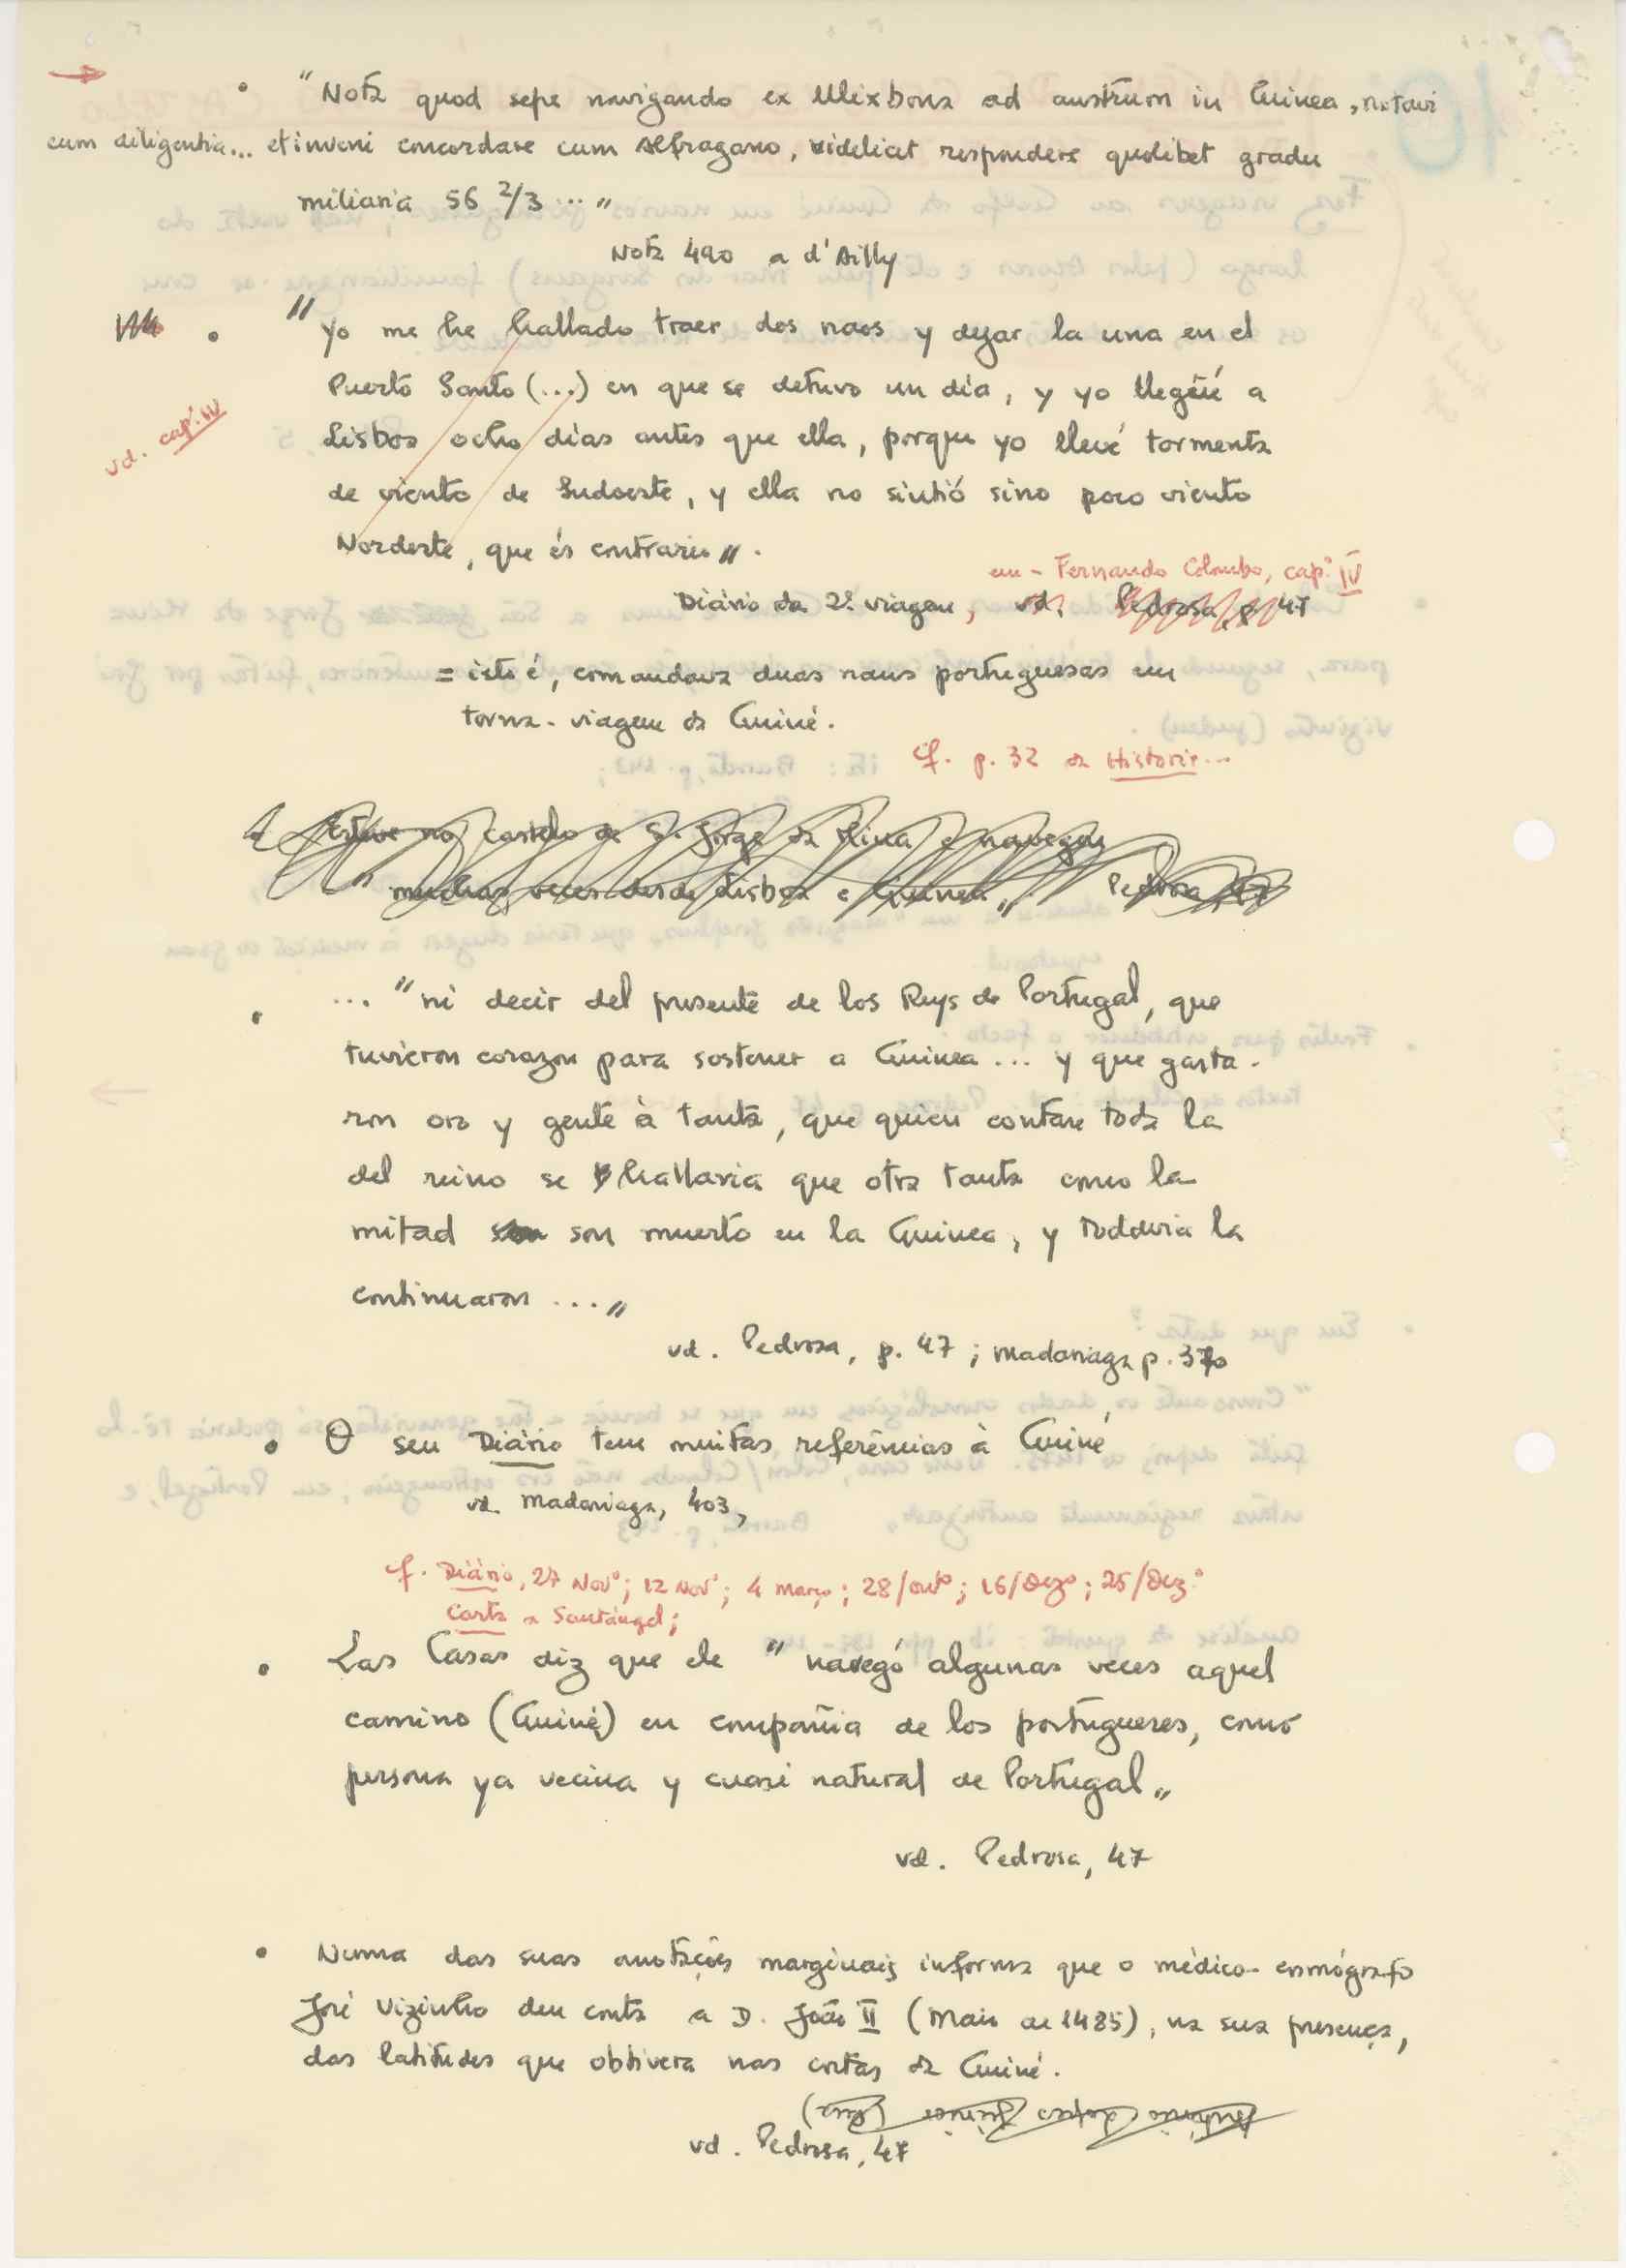 • "Nota quod sepe navigando ex Ulixbona ad austrum in Guinea, notavi
cum diligentia... et inveni concordare cum Alfragano, videlicet respondere quolibet gradu
miliaria 56 2/3 ..."
Nota 490 a d'Ailly
• "Yo me he hallado traer dos naos y dejar la una en el
Puerto Santo (...) en que se detuvo un día, y yo llegué a
Lisboa ocho días antes que ella, porque yo llevé tormenta
de viento de Sudoeste, y ella no sintió sino poco viento
Nordeste, que és contrario".
vd. cap.º IV
em - Fernando Colombo, cap.º IV
Diário da 2ª viagem, vd. Pedrosa, p. 47
= isto é, comandava duas naus portuguesas em
torna-viagem da Guiné.
Cf. p. 32 da Historie...
Esteve no castelo de S. Jorge da Mina e navegou
"muchas veces desde Lisboa a Guinea" Pedrosa, 47
• ... "ni decir del presente de los Reys de Portugal, que
tuvieron corazon para sostener a Guinea ... y que gasta-
ron oro y gente à tanta, que quien contare toda la
del reino se hallaria que otra tanta como la
mitad son muerto en la Guinea, y todavia la
continuaron ..."
vd. Pedrosa, p. 47; Madariaga p. 370
• O seu Diário tem muitas referências à Guiné
vd. Madariaga, 403,
cf. Diário, 27 Novº; 12 Novº; 4 março; 28/outº; 16/Dezº; 25/Dez.º
Carta a Santángel;
• Las Casas diz que ele "navegó algunas veces aquel
camino (Guiné) en compañia de los portugueses, como
persona ya vecina y cuasi natural de Portugal"
vd. Pedrosa, 47
• Numa das suas anotações marginais informa que o médico-cosmógrafo
José Vizinho deu conta a D. João II (Maio de 1485), na sua presença,
das latitudes que obtivera nas costas da Guiné.
vd. Pedrosa, 47